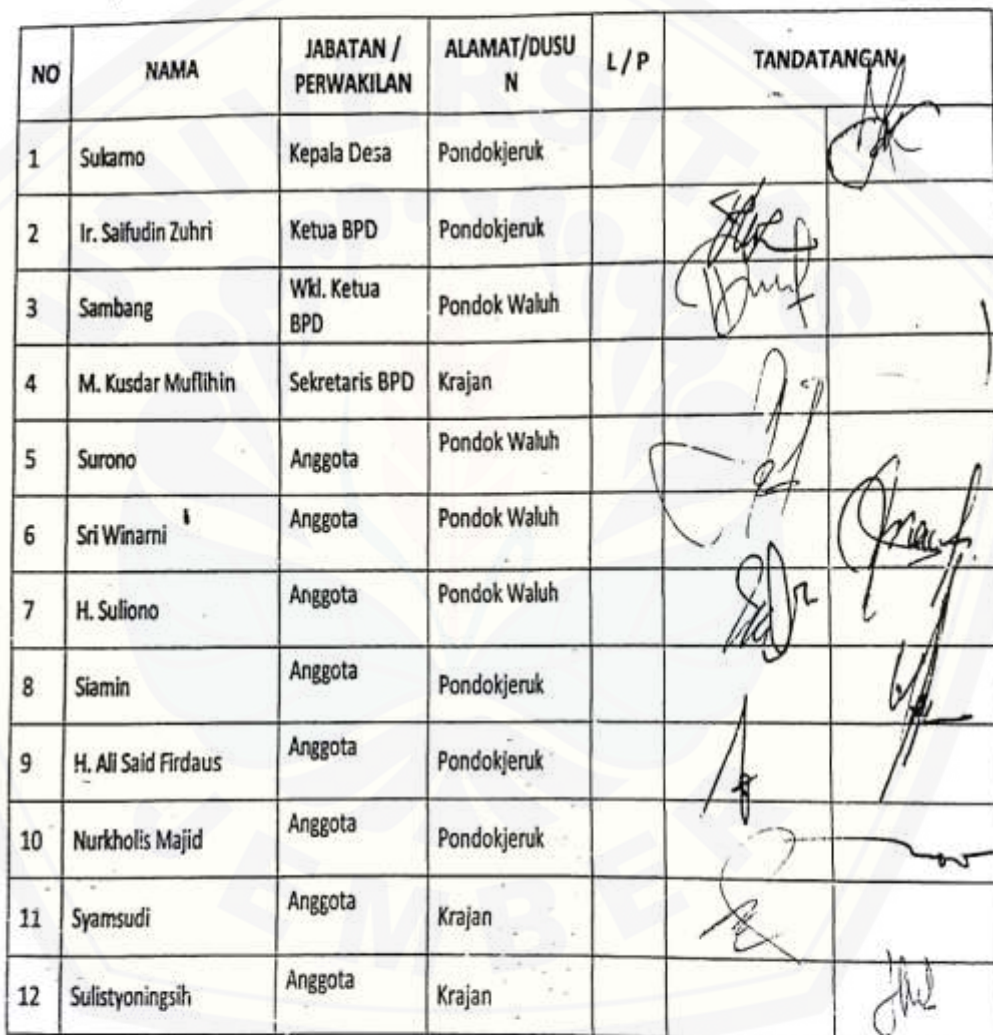 NO NAMA JABATAN / PERWAKILAN ALAMAT/DUSU N L / P TANDATANGAN
1 Sukarno Kepala Desa Pondokjeruk
2 Ir. Saifudin Zuhri Ketua BPD Pondokjeruk
3 Sambang Wkl. Ketua BPD Pondok Waluh
4 M. Kusdar Muflihin Sekretaris BPD Krajan
5 Surono Anggota Pondok Waluh
6 Sri Winarni Anggota Pondok Waluh
7 H. Suliono Anggota Pondok Waluh
8 Siamin Anggota Pondokjeruk
9 H. Ali Said Firdaus Anggota Pondokjeruk
10 Nurkholis Majid Anggota Pondokjeruk
11 Syamsudi Anggota Krajan
12 Sulistyoningsih Anggota Krajan
UNIVERSITAS
JEMBER